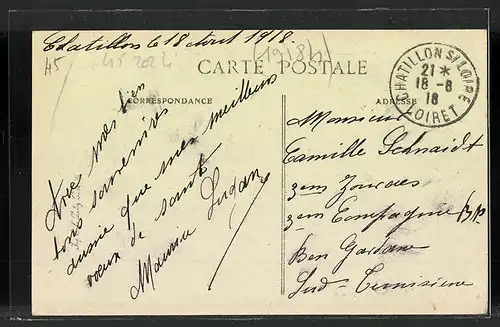 Chatillon le 18 Aout 1918.
(1918)
A5
45 2024
CARTE POSTALE
CORRESPONDANCE
ADRESSE
CHATILLON S/ LOIRE
21 *
18 - 8
18
LOIRET
Avec mes bien
bons souvenirs
ainsi que mes meilleurs
vœux de santé
Maurice
Monsieur
Camille Schnaidt
3em Zouaves
3em Compagnie
Ben Gardane
Sud Tunisien